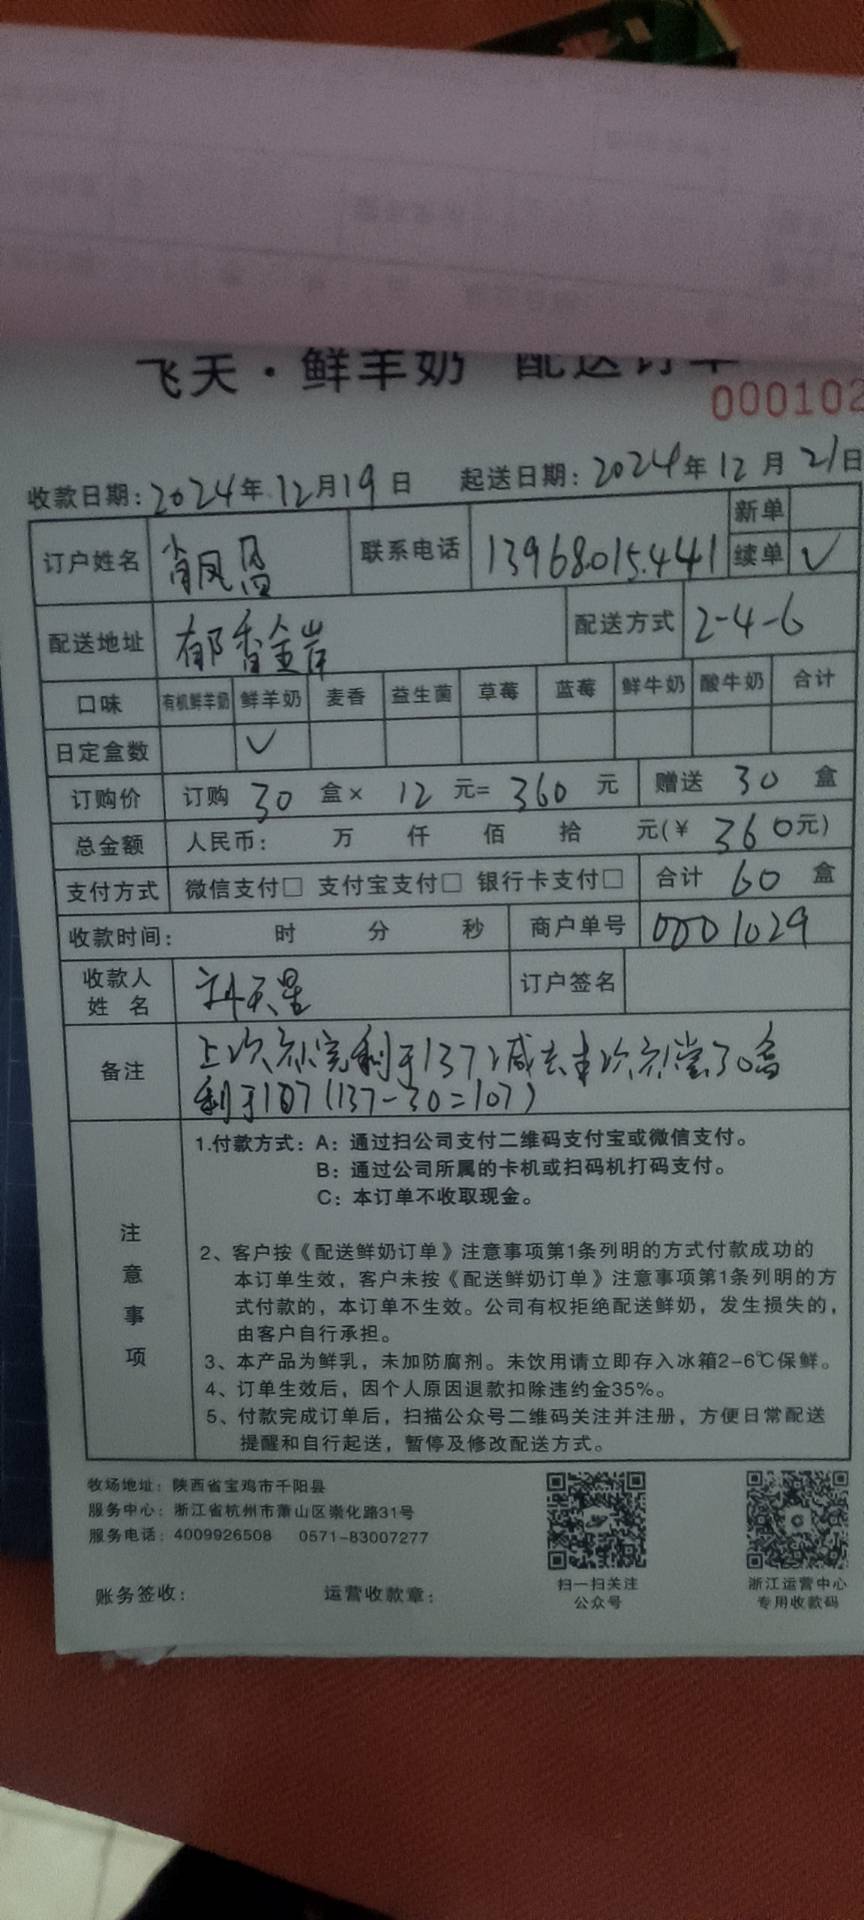 飞天·鲜羊奶 配送订单
000102
收款日期：2024年12月19日 起送日期：2024年12月21日
订户姓名 肖凤昌 联系电话 13968015441 新单
续单 ✓
配送地址 郁香金岸 配送方式 2-4-6
口味 有机鲜羊奶 鲜羊奶 麦香 益生菌 草莓 蓝莓 鲜牛奶 酸牛奶 合计
日定盒数 ✓
订购价 订购 30 盒× 12 元= 360 元 赠送 30 盒
总金额 人民币： 万 仟 佰 拾 元(￥ 360元)
支付方式 微信支付□ 支付宝支付□ 银行卡支付□ 合计 60 盒
收款时间： 时 分 秒 商户单号 0001029
收款人
姓 名 天星 订户签名
备注 上次补完剩于137减去本次补偿30盒
剩于107(137-30=107)
注意事项
1.付款方式：A：通过扫公司支付二维码支付宝或微信支付。
B：通过公司所属的卡机或扫码机打码支付。
C：本订单不收取现金。
2、客户按《配送鲜奶订单》注意事项第1条列明的方式付款成功的
本订单生效，客户未按《配送鲜奶订单》注意事项第1条列明的方
式付款的，本订单不生效。公司有权拒绝配送鲜奶，发生损失的，
由客户自行承担。
3、本产品为鲜乳，未加防腐剂。未饮用请立即存入冰箱2-6℃保鲜。
4、订单生效后，因个人原因退款扣除违约金35%。
5、付款完成订单后，扫描公众号二维码关注并注册，方便日常配送
提醒和自行起送，暂停及修改配送方式。
牧场地址：陕西省宝鸡市千阳县
服务中心：浙江省杭州市萧山区崇化路31号
服务电话：4009926508 0571-83007277
扫一扫关注
公众号
浙江运营中心
专用收款码
账务签收： 运营收款章：